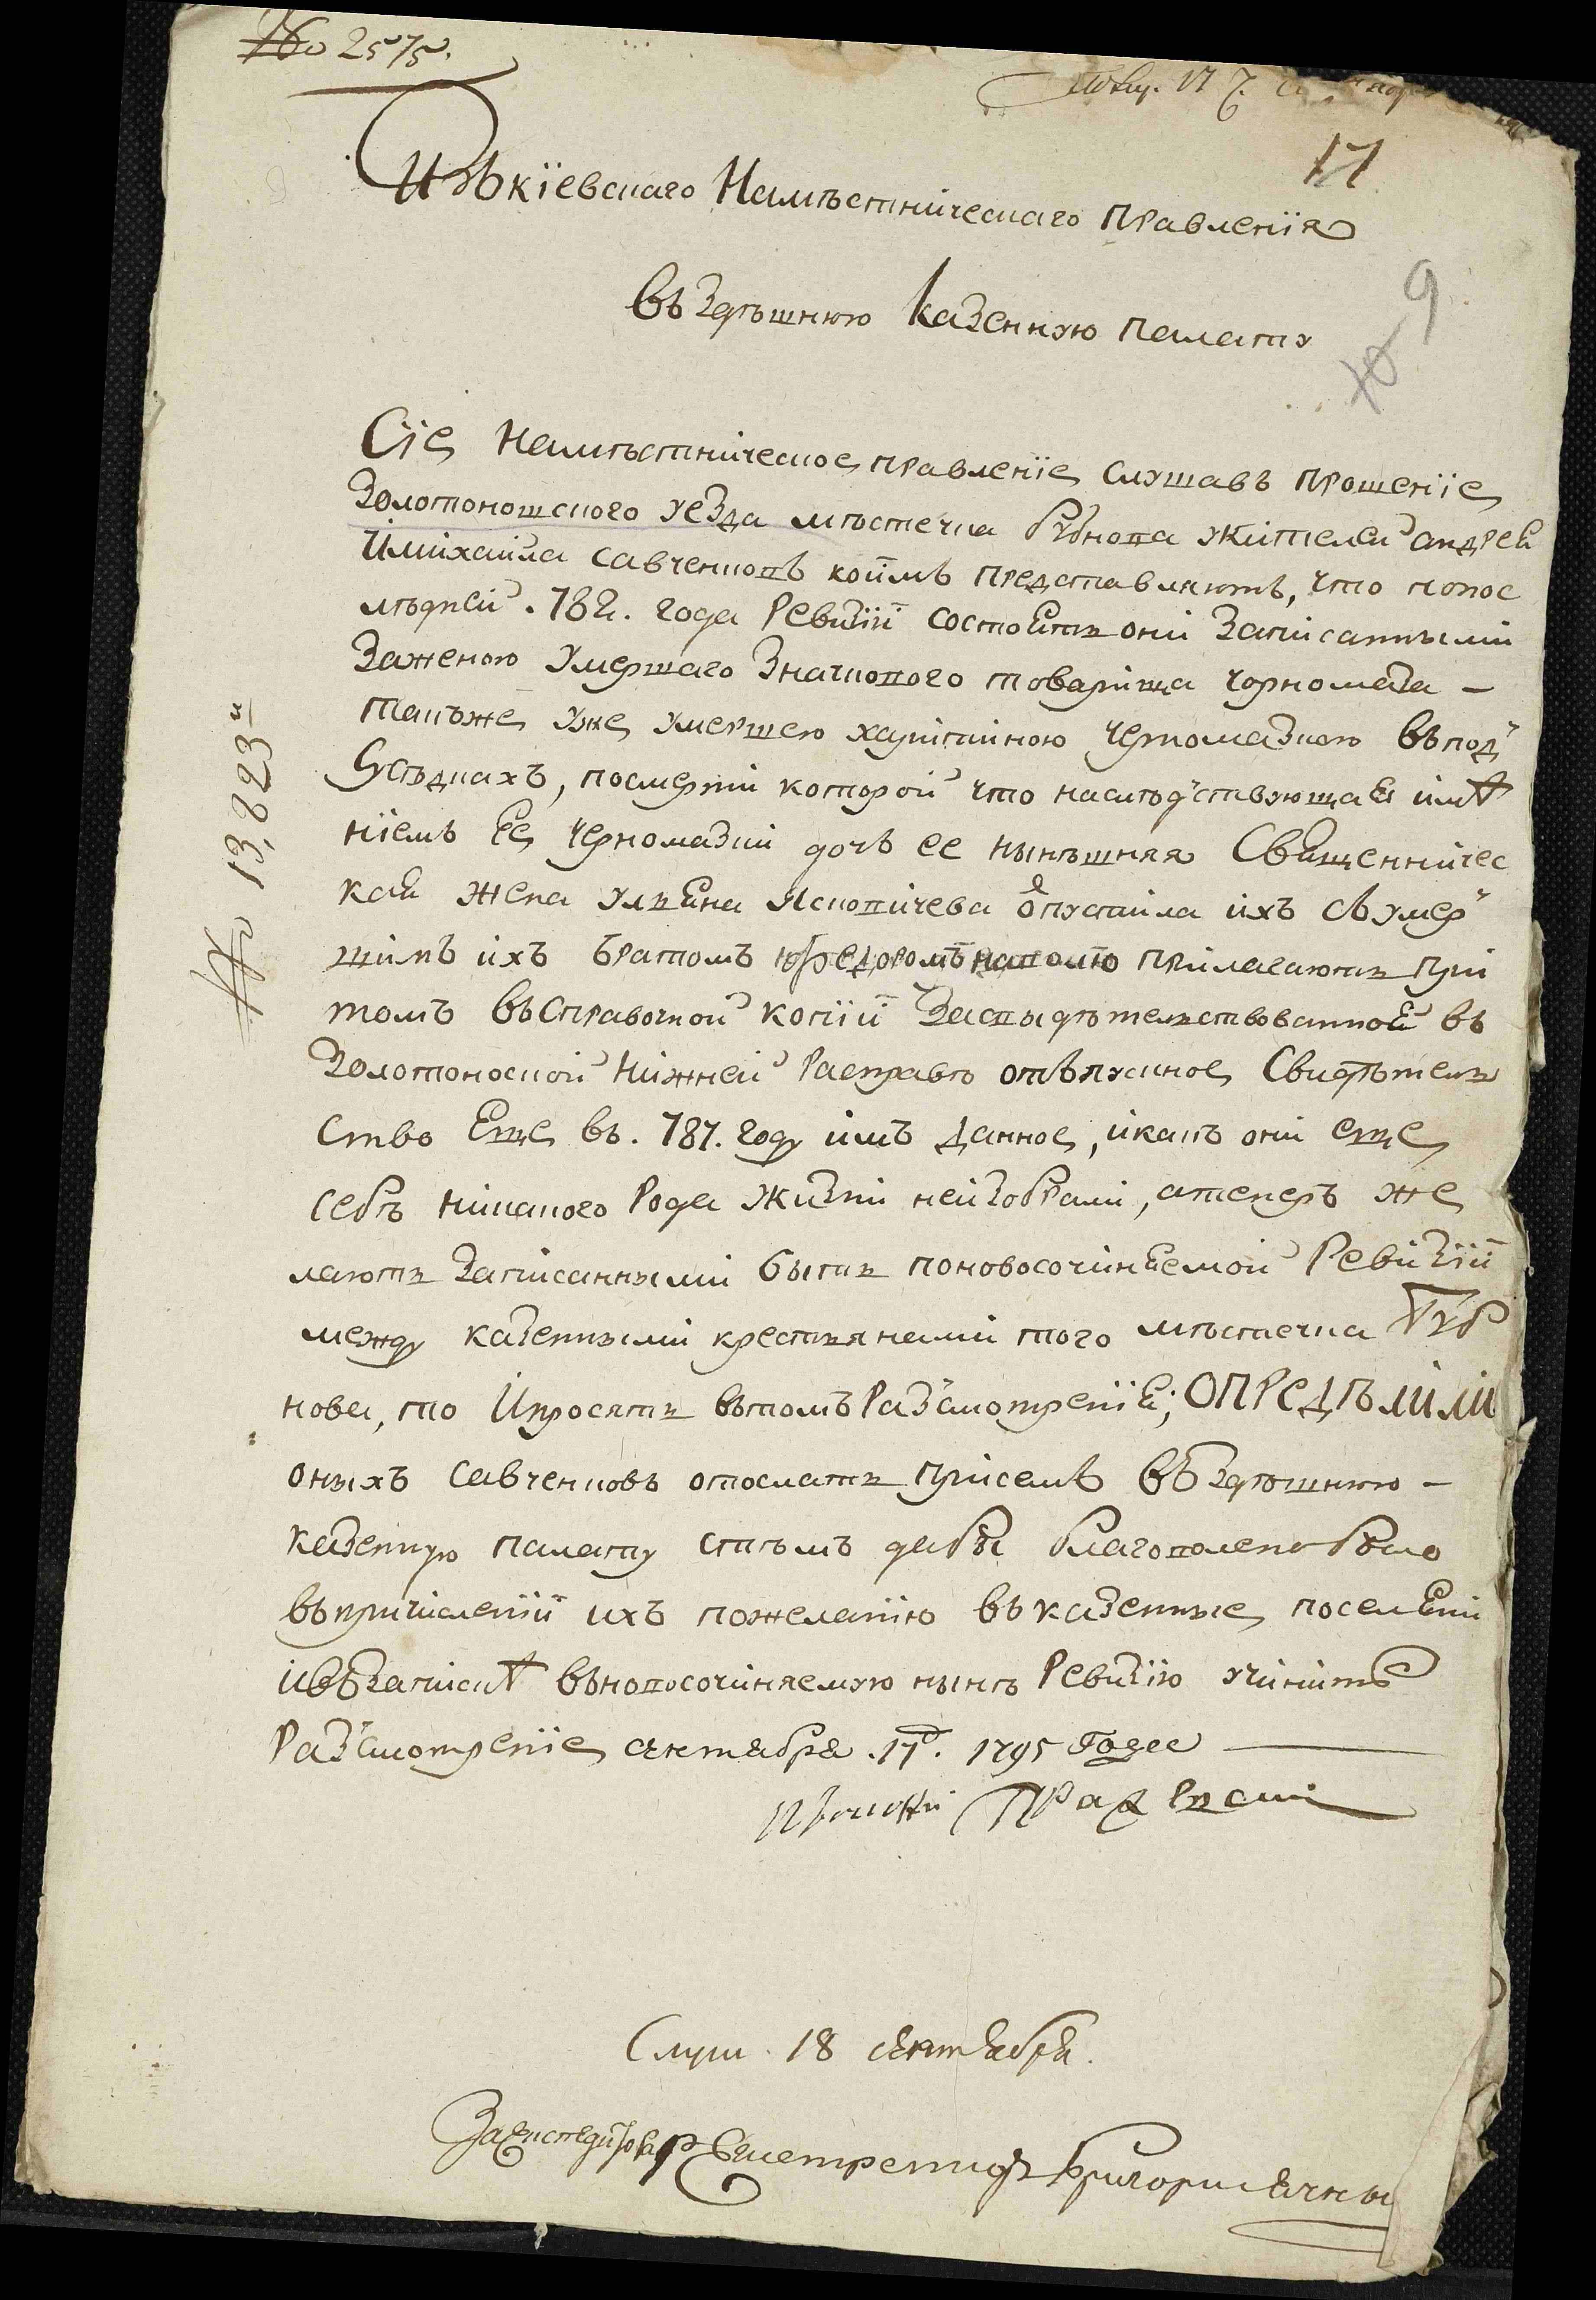 No 2575.
17
Изъ Кіевскаго Намѣстническаго Правленія
9
въ здѣшнюю Казенную Палату
Сіе Намѣстническое правленіе слушавъ прошеніе
Золотоношского уезда мѣстечка бубнова жителей андрея
и михайла савченковъ коимъ представляютъ, что попос
лѣдней .782. года Ревизіи состоятъ они записанными
заженою умершаго значкового товарища чорномаза –
такъже уже умершею харитиною черномазкою въпод
сусѣдкахъ, посмерти которой что наслѣдствующая имѣ
ніемъ ее черномазки дочь ее нынѣшняя Священничес
кая жена ульяна Яновичева отпустила ихъ съумер
шимъ ихъ братомъ федоромъ наволю прилагаютъ при
томъ въсправочной копіи засвыдѣтельствованной въ
Золотоноской Нижней Расправѣ отъпускное Свидѣтель
ство Еще въ .787. году имъ данное, икакъ они еще
себѣ никакого рода жизни неизобрали, атеперъ же
лаютъ записанными быть поновосочиняемой Ревизіи
между казенными крестьянами того мѣстечка Буб
нова, то ипросятъ вътомъ разсмотренія; ОПРЕДѢЛИЛИ
оныхъ савченковъ отослать присемъ въздѣшнюю –
казенную палату стѣмъ дабы благоволено было
въпричисленіи ихъ пожеланію въказенные поселяни
ивъзапискѣ вновосочиняемую нынѣ Ревизію учинить
разсмотреніе сентября .17. 1795 Года
No 13,823
Слуш. 18 сентября.
За експедитора Регистраторъ